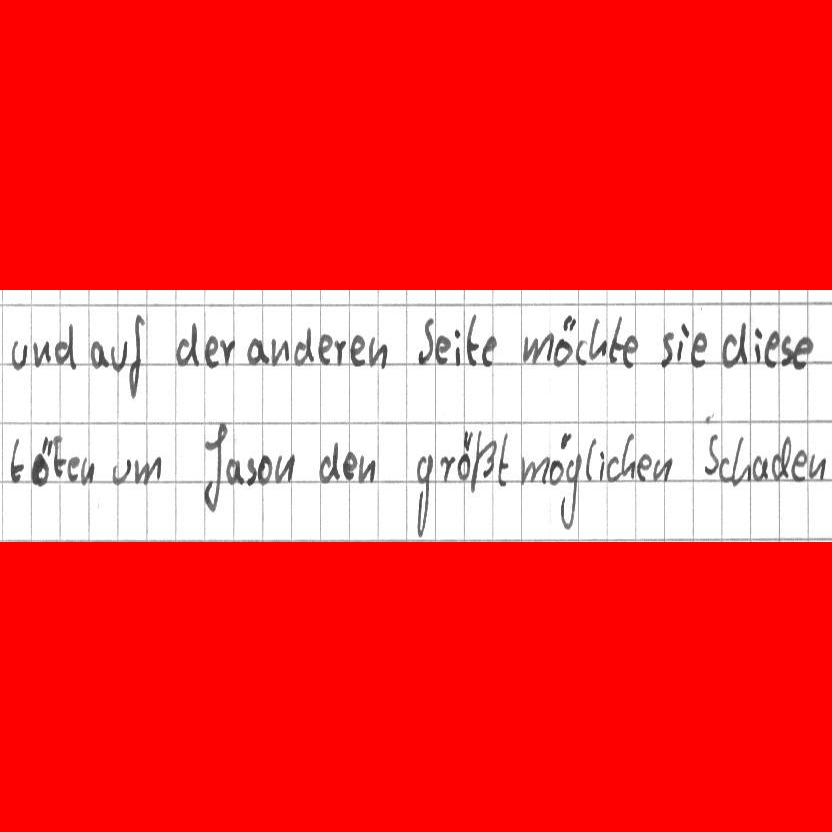 und auf der anderen Seite möchte sie diese
töten um Jason den größtmöglichen Schaden